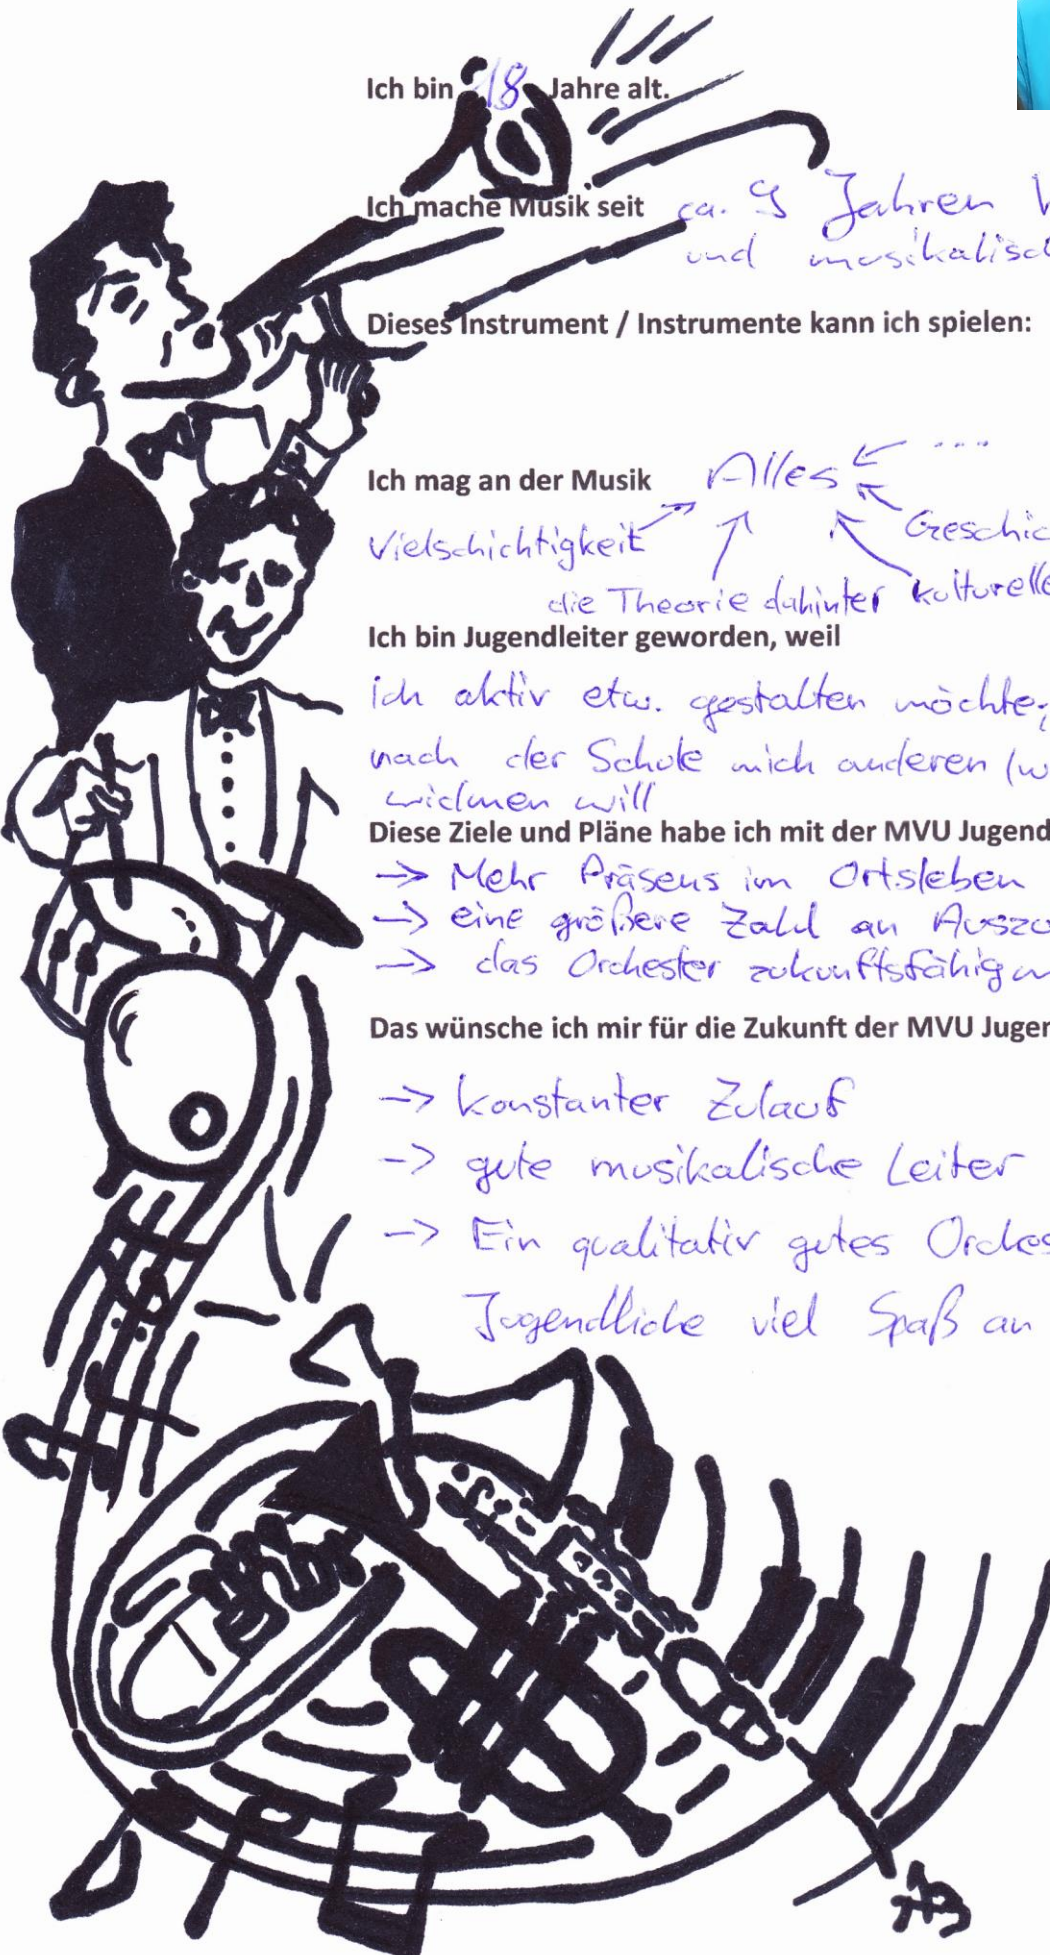 Ich bin 18 Jahre alt.
Ich mache Musik seit ca. 9 Jahren
und
Dieses Instrument / Instrumente kann ich spielen:
Ich mag an der Musik Alles ← ...
Vielschichtigkeit
die Theorie dahinter
Ich bin Jugendleiter geworden, weil
ich aktiv etw. gestalten möchte;
nach der Schule mich anderen
widmen will
Diese Ziele und Pläne habe ich mit der MVU Jugend
-> Mehr Präsens im Ortsleben
-> eine größere Zahl an
-> das Orchester zukunftsfähig
Das wünsche ich mir für die Zukunft der MVU
-> konstanter Zulauf
-> gute musikalische Leiter
-> Ein qualitativ gutes
Jugendliche viel Spaß an